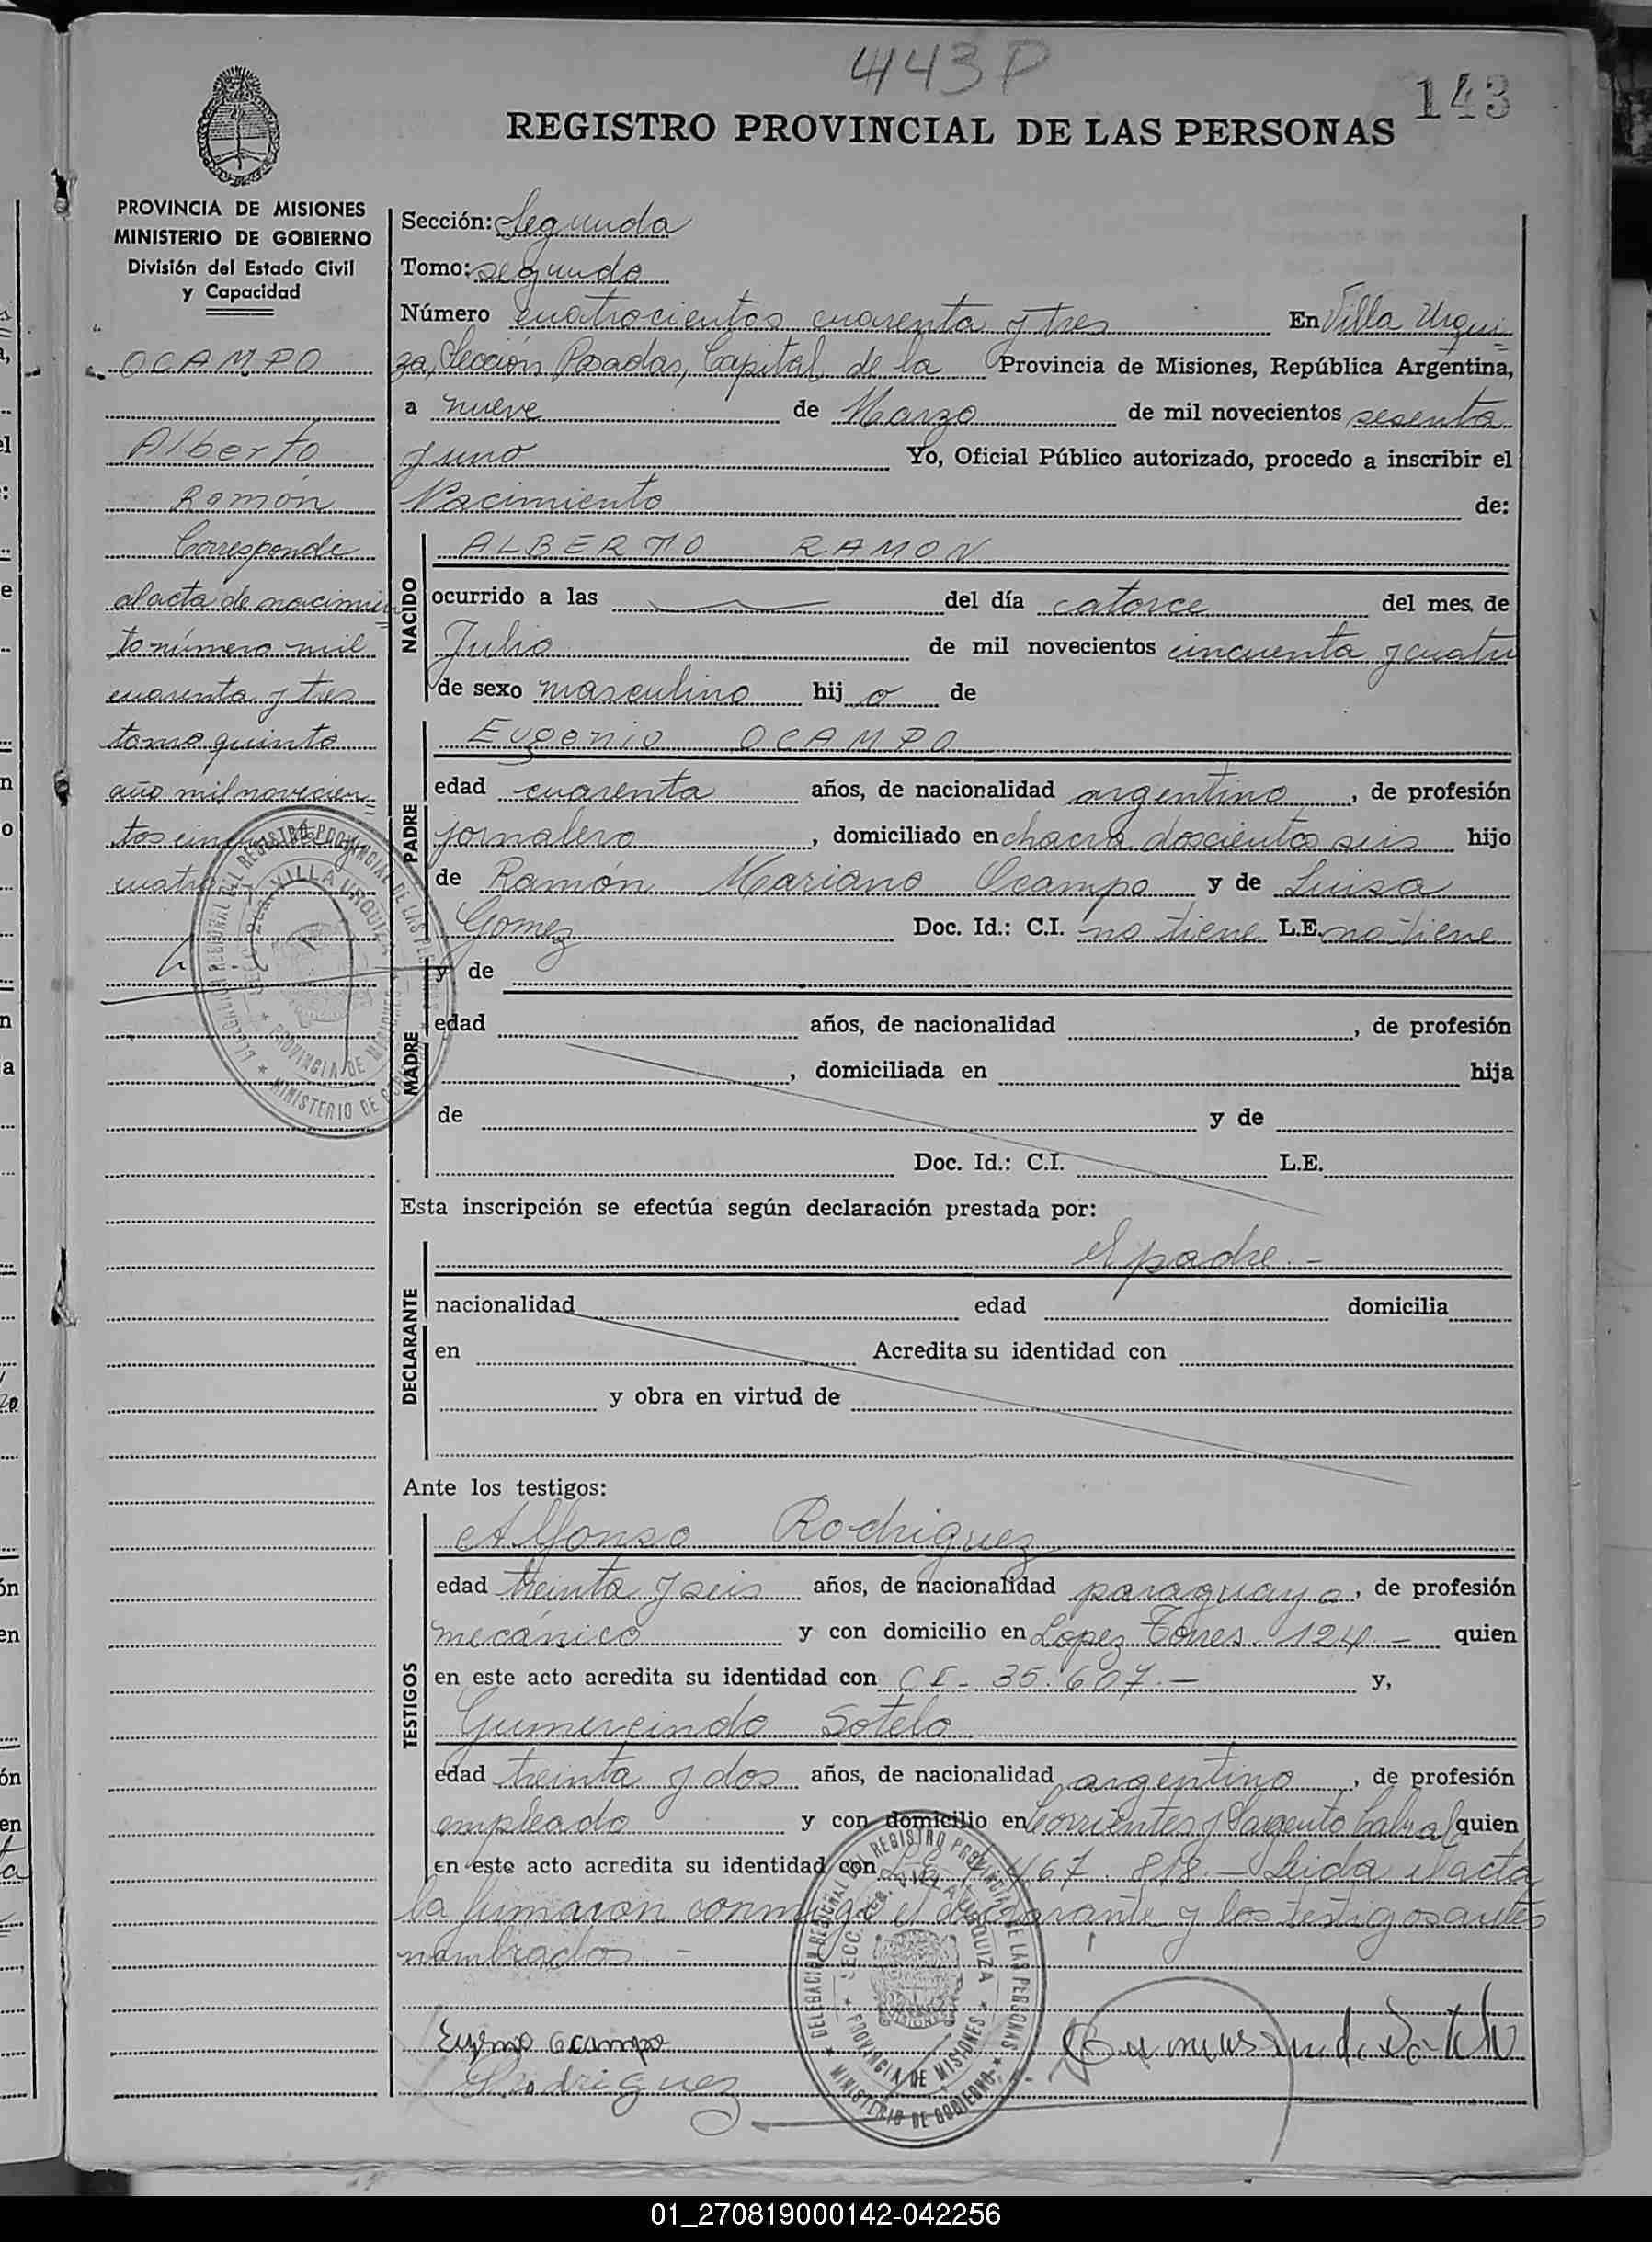 443 P
143
REGISTRO PROVINCIAL DE LAS PERSONAS
PROVINCIA DE MISIONES
MINISTERIO DE GOBIERNO
División del Estado Civil
y Capacidad
OCAMPO
Alberto
Ramón
Corresponde
al acta de nacimien
to número mil
cuarenta y tres
tomo quinto
año mil novecien
tos cincuenta y
cuatro
Sección: Segunda
Tomo: segundo
Número cuatrocientos cuarenta y tres En Villa Urqui
za, Sección Posadas, Capital de la Provincia de Misiones, República Argentina,
a nueve de Marzo de mil novecientos sesenta
y uno Yo, Oficial Público autorizado, procedo a inscribir el
Nacimiento de:
NACIDO
ALBERTO RAMON
ocurrido a las del día catorce del mes de
Julio de mil novecientos cincuenta y cuatro
de sexo masculino hij o de
PADRE
Eugenio OCAMPO
edad cuarenta años, de nacionalidad argentino, de profesión
jornalero, domiciliado en chacra doscientos seis hijo
de Ramón Mariano Ocampo y de Luisa
Gomez Doc. Id.: C.I. no tiene L.E. no tiene
MADRE
y de
edad años, de nacionalidad , de profesión
, domiciliada en hija
de y de
Doc. Id.: C.I. L.E.
Esta inscripción se efectúa según declaración prestada por:
DECLARANTE
el padre.-
nacionalidad edad domicilia
en Acredita su identidad con
y obra en virtud de
Ante los testigos:
TESTIGOS
Alfonso Rodriguez
edad treinta y seis años, de nacionalidad paraguayo, de profesión
mecánico y con domicilio en Lopez Torres 124.- quien
en este acto acredita su identidad con C I - 35.607.- y,
Gumercindo Sotelo
edad treinta y dos años, de nacionalidad argentino, de profesión
empleado y con domicilio en Corrientes y Sargento Cabral quien
en este acto acredita su identidad con 467.818.- Leida el acta
la firmaron conmigo el declarante y los testigos antes
nombrados.-
Eugenio Ocampo
Rodriguez
DELEGACION REGIONAL DEL REGISTRO PROVINCIAL DE LAS PERSONAS
SECC. VILLA URQUIZA
PROVINCIA DE MISIONES
MINISTERIO DE GOBIERNO
01_270819000142-042256